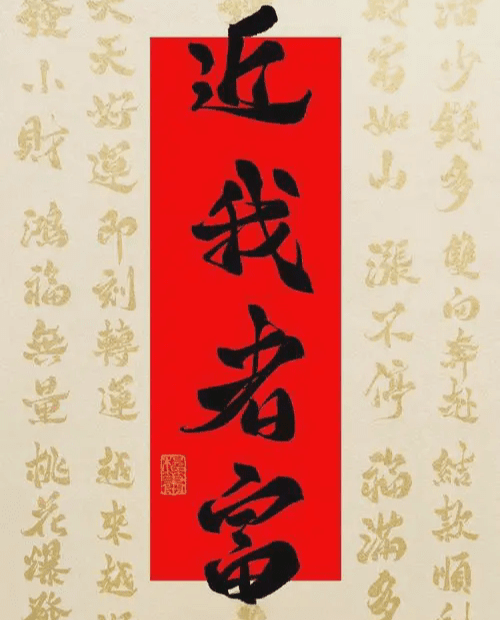 活少錢多 雙向奔赴 結款順利
財富如山 漲不停 福滿多
近我者富
天天好運 即刻轉運 越來越
發小財 鴻福無量 桃花爆發